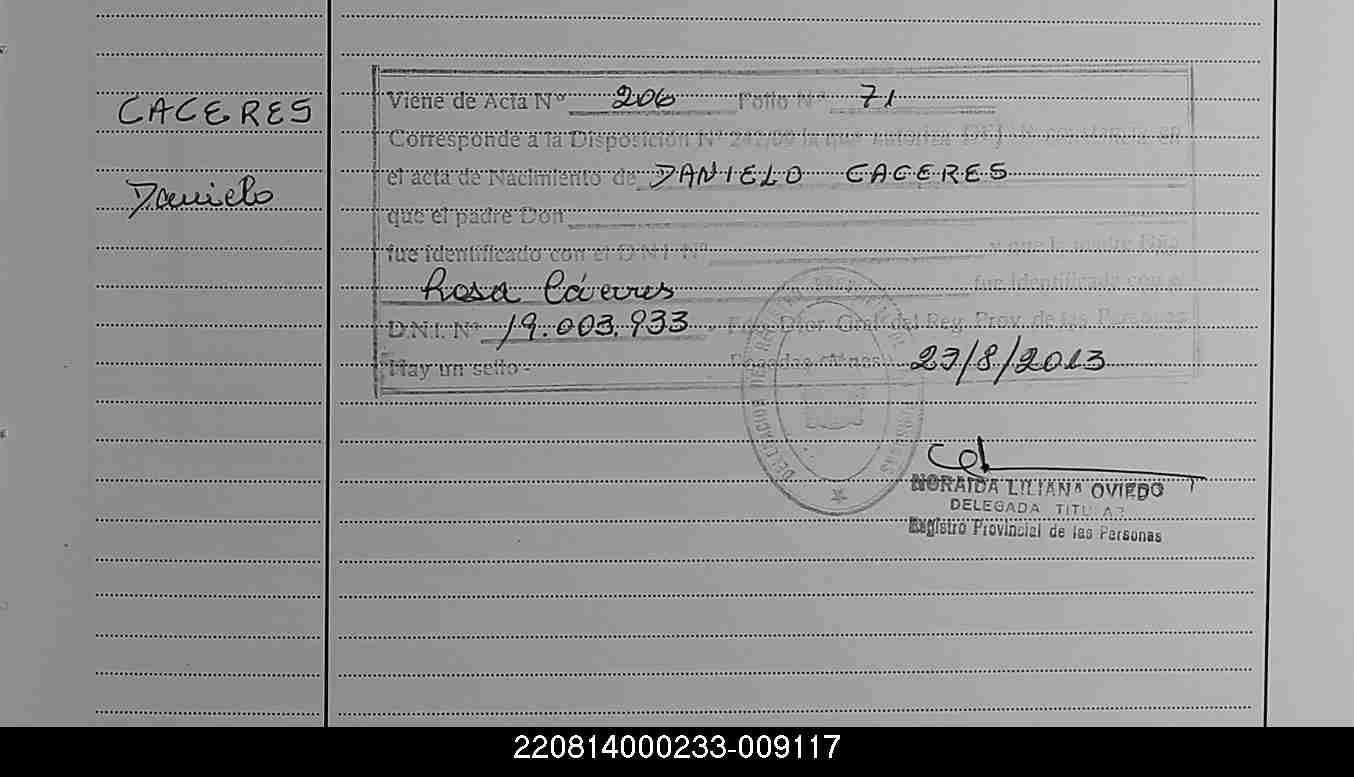 CACERES
Danielo
Viene de Acta Nº 206 Folio Nº 71
Corresponde a la Disposición Nº 242/09 la que autoriza DEJAR constancia en
el acta de Nacimiento de DANIELO CACERES
que el padre Don
fue identificado con el D.N.I. Nº y que la madre Dña.
Rosa Cáceres fue identificada con el
D.N.I. Nº 19.003.933 . Fdo. Dtor. Gral. del Reg. Prov. de las Personas
Hay un sello.- Posadas (Mnes) 23/8/2013
NORAIDA LILIANA OVIEDO
DELEGADA TITULAR
Registro Provincial de las Personas
220814000233-009117